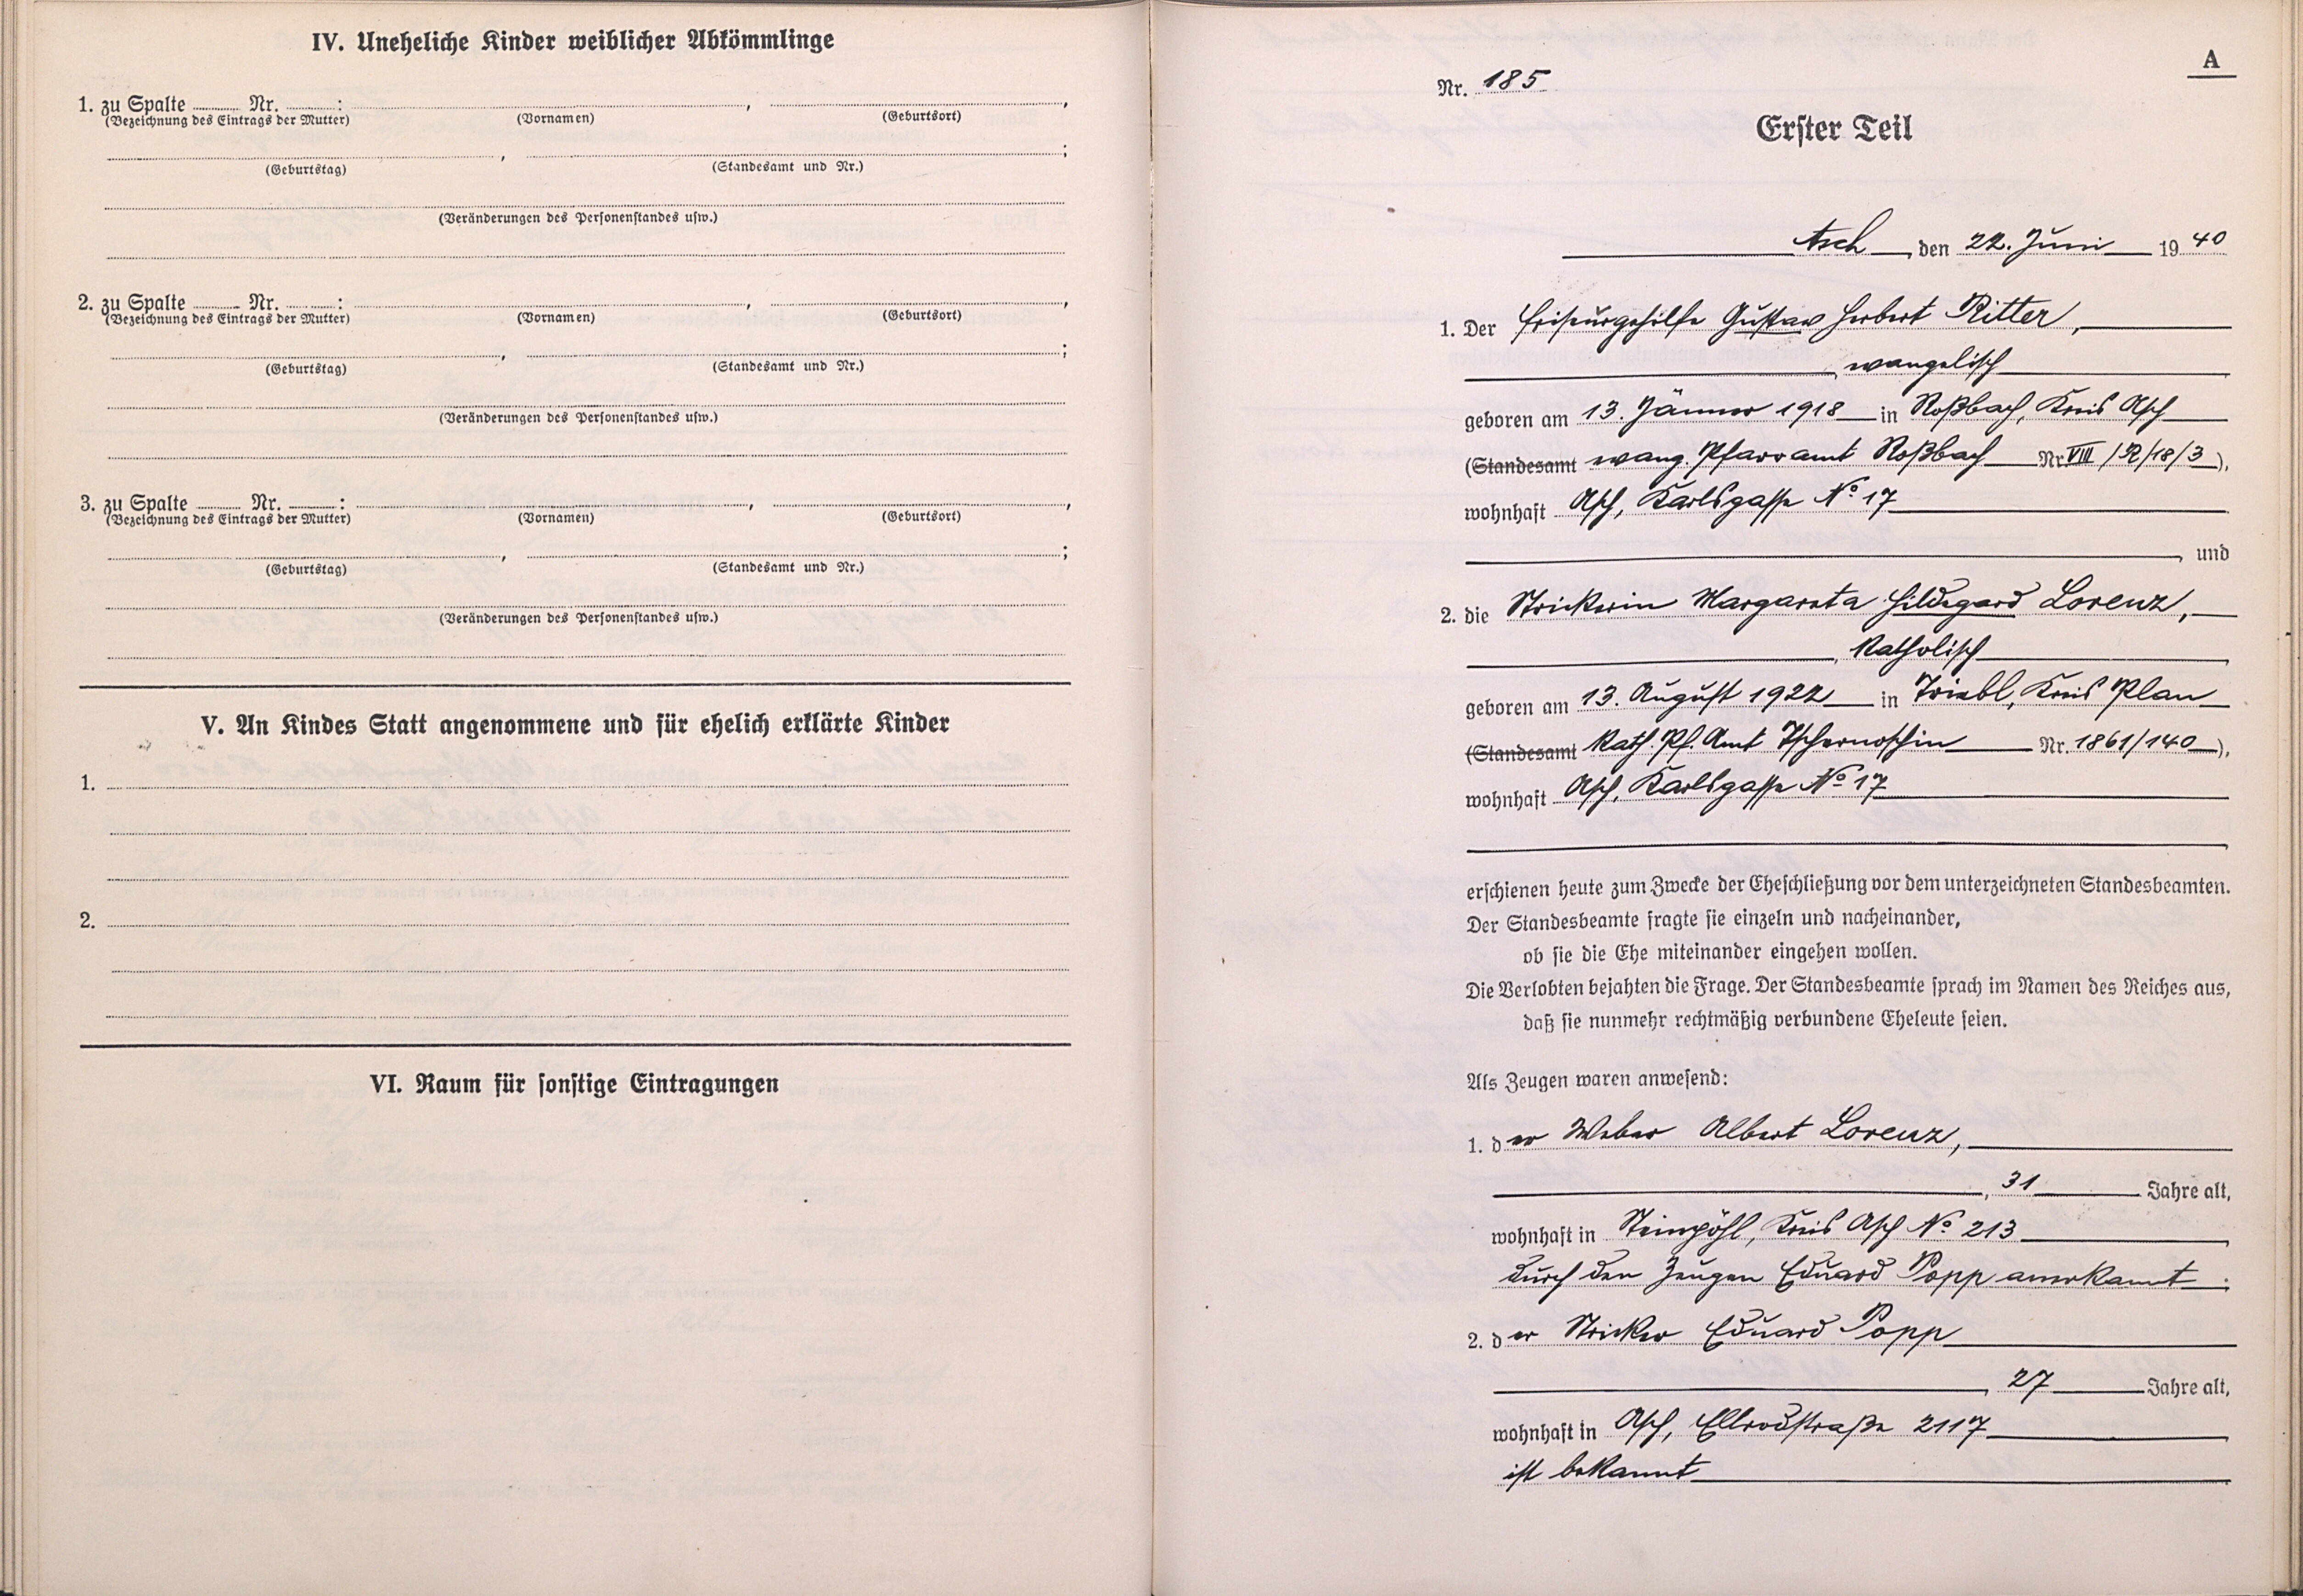 IV. Uneheliche Kinder weiblicher Abkömmlinge
1. zu Spalte ........ Nr. ........ : ........ , ........ ,
(Bezeichnung des Eintrags der Mutter) (Vornamen) (Geburtsort)
........ , ........ ;
(Geburtstag) (Standesamt und Nr.)
(Veränderungen des Personenstandes usw.)
2. zu Spalte ........ Nr. ........ : ........ , ........ ,
(Bezeichnung des Eintrags der Mutter) (Vornamen) (Geburtsort)
........ , ........ ;
(Geburtstag) (Standesamt und Nr.)
(Veränderungen des Personenstandes usw.)
3. zu Spalte ........ Nr. ........ : ........ , ........ ,
(Bezeichnung des Eintrags der Mutter) (Vornamen) (Geburtsort)
........ , ........ ;
(Geburtstag) (Standesamt und Nr.)
(Veränderungen des Personenstandes usw.)
V. An Kindes Statt angenommene und für ehelich erklärte Kinder
1.
2.
VI. Raum für sonstige Eintragungen
A
Nr. 185
Erster Teil
Asch, den 22. Juni 1940
1. Der Friseurgehilfe Gustav Herbert Ritter,
, evangelisch
geboren am 13. Jänner 1918 in Roßbach, Kreis Asch
(Standesamt evang. Pfarramt Roßbach Nr. VIII/R/18/3),
wohnhaft Asch, Karlsgasse No 17
, und
2. die Strickerin Margareta Hildegard Lorenz,
, katholisch
geboren am 13. August 1922 in Triebl, Kreis Plan
(Standesamt Kath. Pf. Amt Tschernoschin Nr. 1861/140),
wohnhaft Asch, Karlsgasse No 17
erschienen heute zum Zwecke der Eheschließung vor dem unterzeichneten Standesbeamten.
Der Standesbeamte fragte sie einzeln und nacheinander,
ob sie die Ehe miteinander eingehen wollen.
Die Verlobten bejahten die Frage. Der Standesbeamte sprach im Namen des Reiches aus,
daß sie nunmehr rechtmäßig verbundene Eheleute seien.
Als Zeugen waren anwesend:
1. der Weber Albert Lorenz,
, 31 Jahre alt,
wohnhaft in Steinpöhl, Kreis Asch No 213
durch den Zeugen Eduard Popp anerkannt.
2. der Stricker Eduard Popp
, 27 Jahre alt,
wohnhaft in Asch, Ellrodstraße 2117
ist bekannt